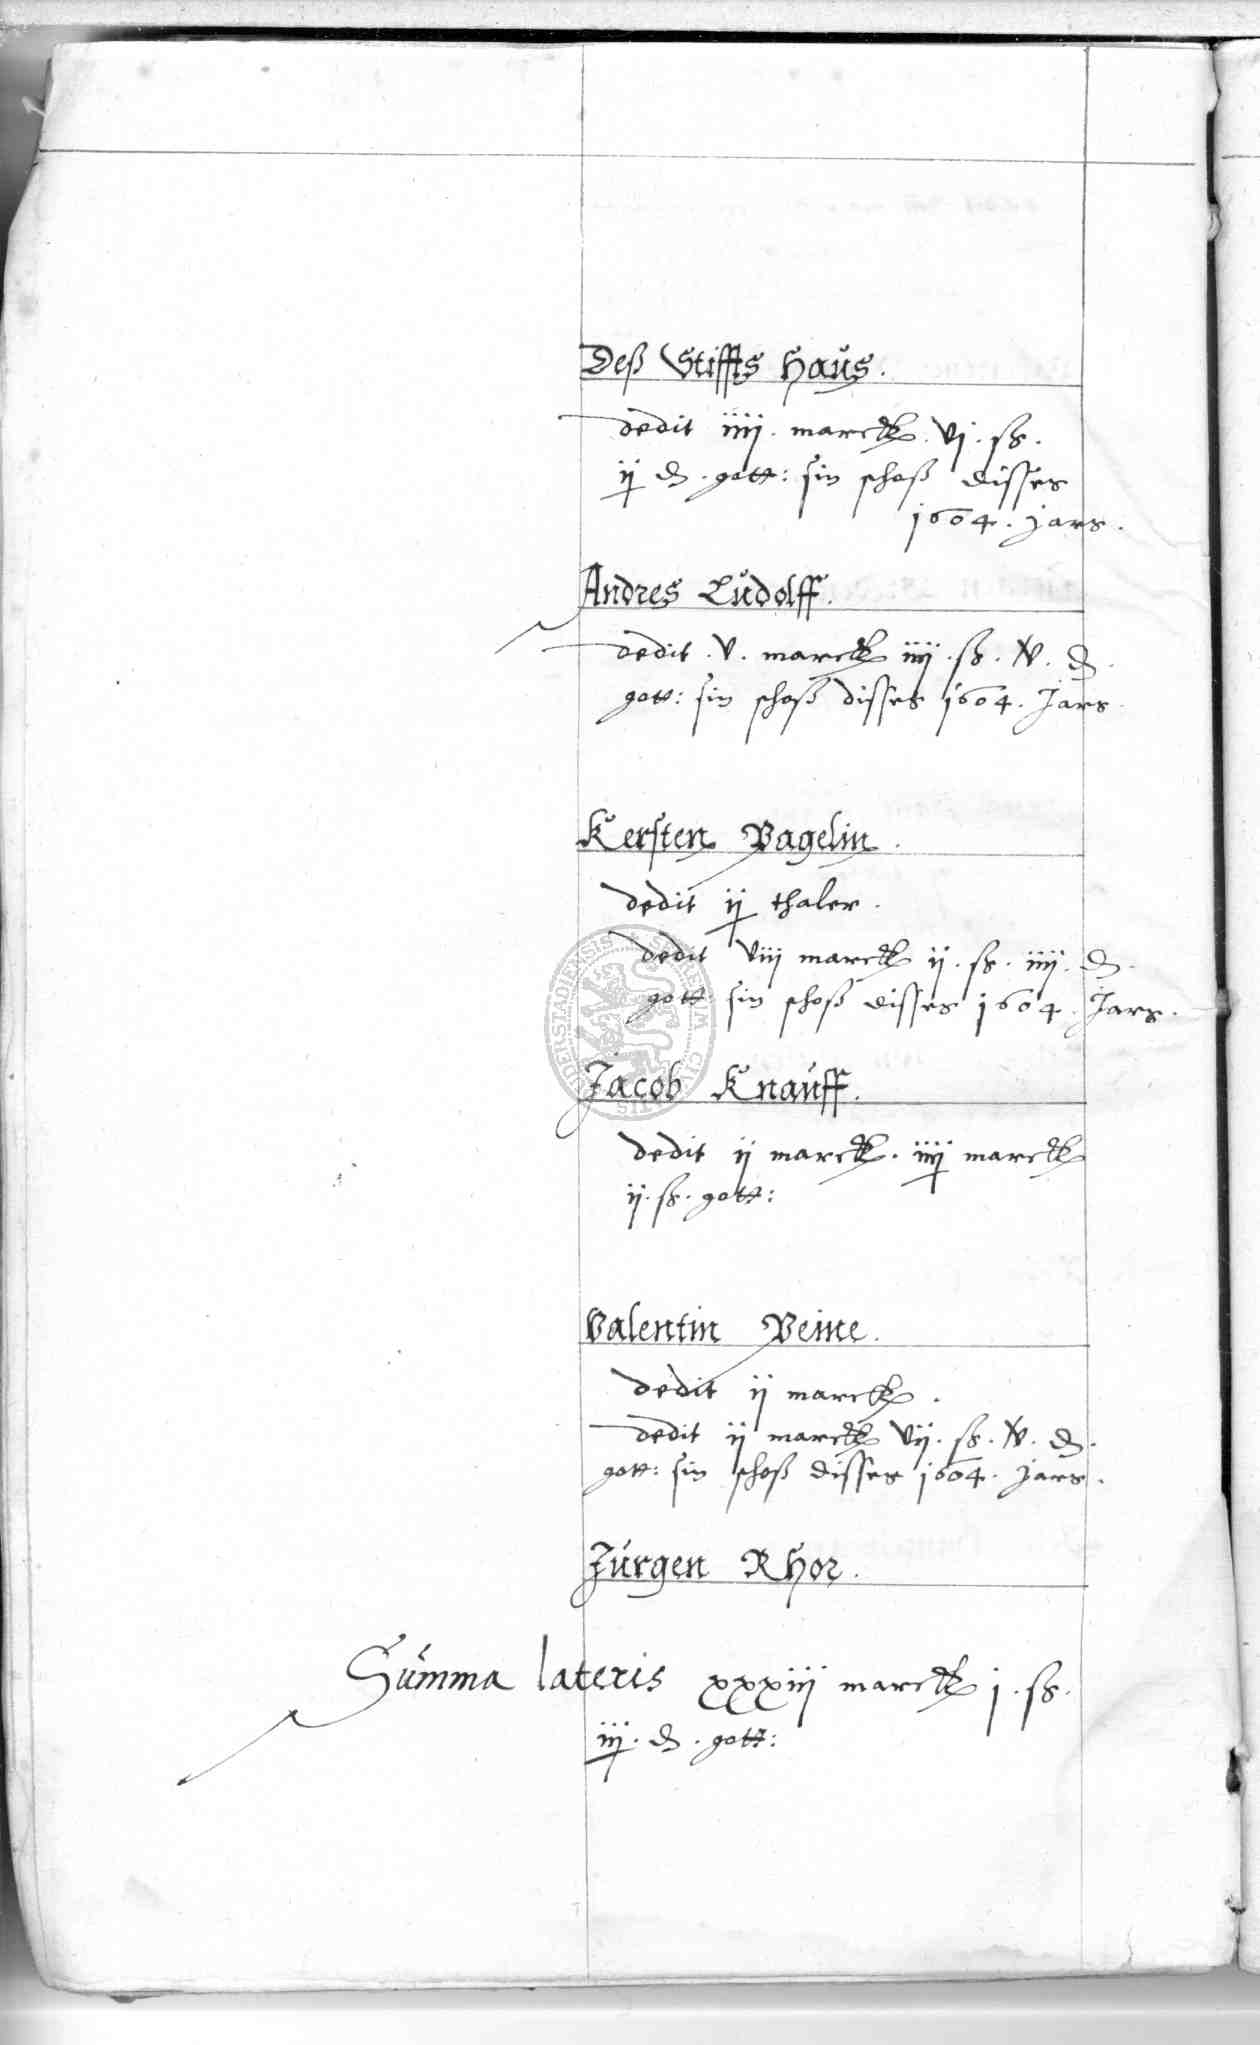 Deß Stiffts Haus.
dedit iiij. marck. vj. ß.
ij d. gott: sin schoß disses
1604. jars.
Andres Ludolff.
dedit. v. marck iiij. ß. v. d.
gott: sin schoß disses 1604. Jars.
Kersten Vagelin.
dedit ij thaler.
dedit viij marck ij. ß. iiij. d.
gott: sin schoß disses 1604. Jars.
Jacob Knauff.
dedit ij marck. iiij marck
ij. ß. gott:
Valentin Peine.
dedit ij marck.
dedit ij marck vij. ß. v. d.
gott: sin schoß disses 1604. jars.
Jurgen Rhor.
Summa lateris xxxiij marck j. ß.
iij. d. gott: